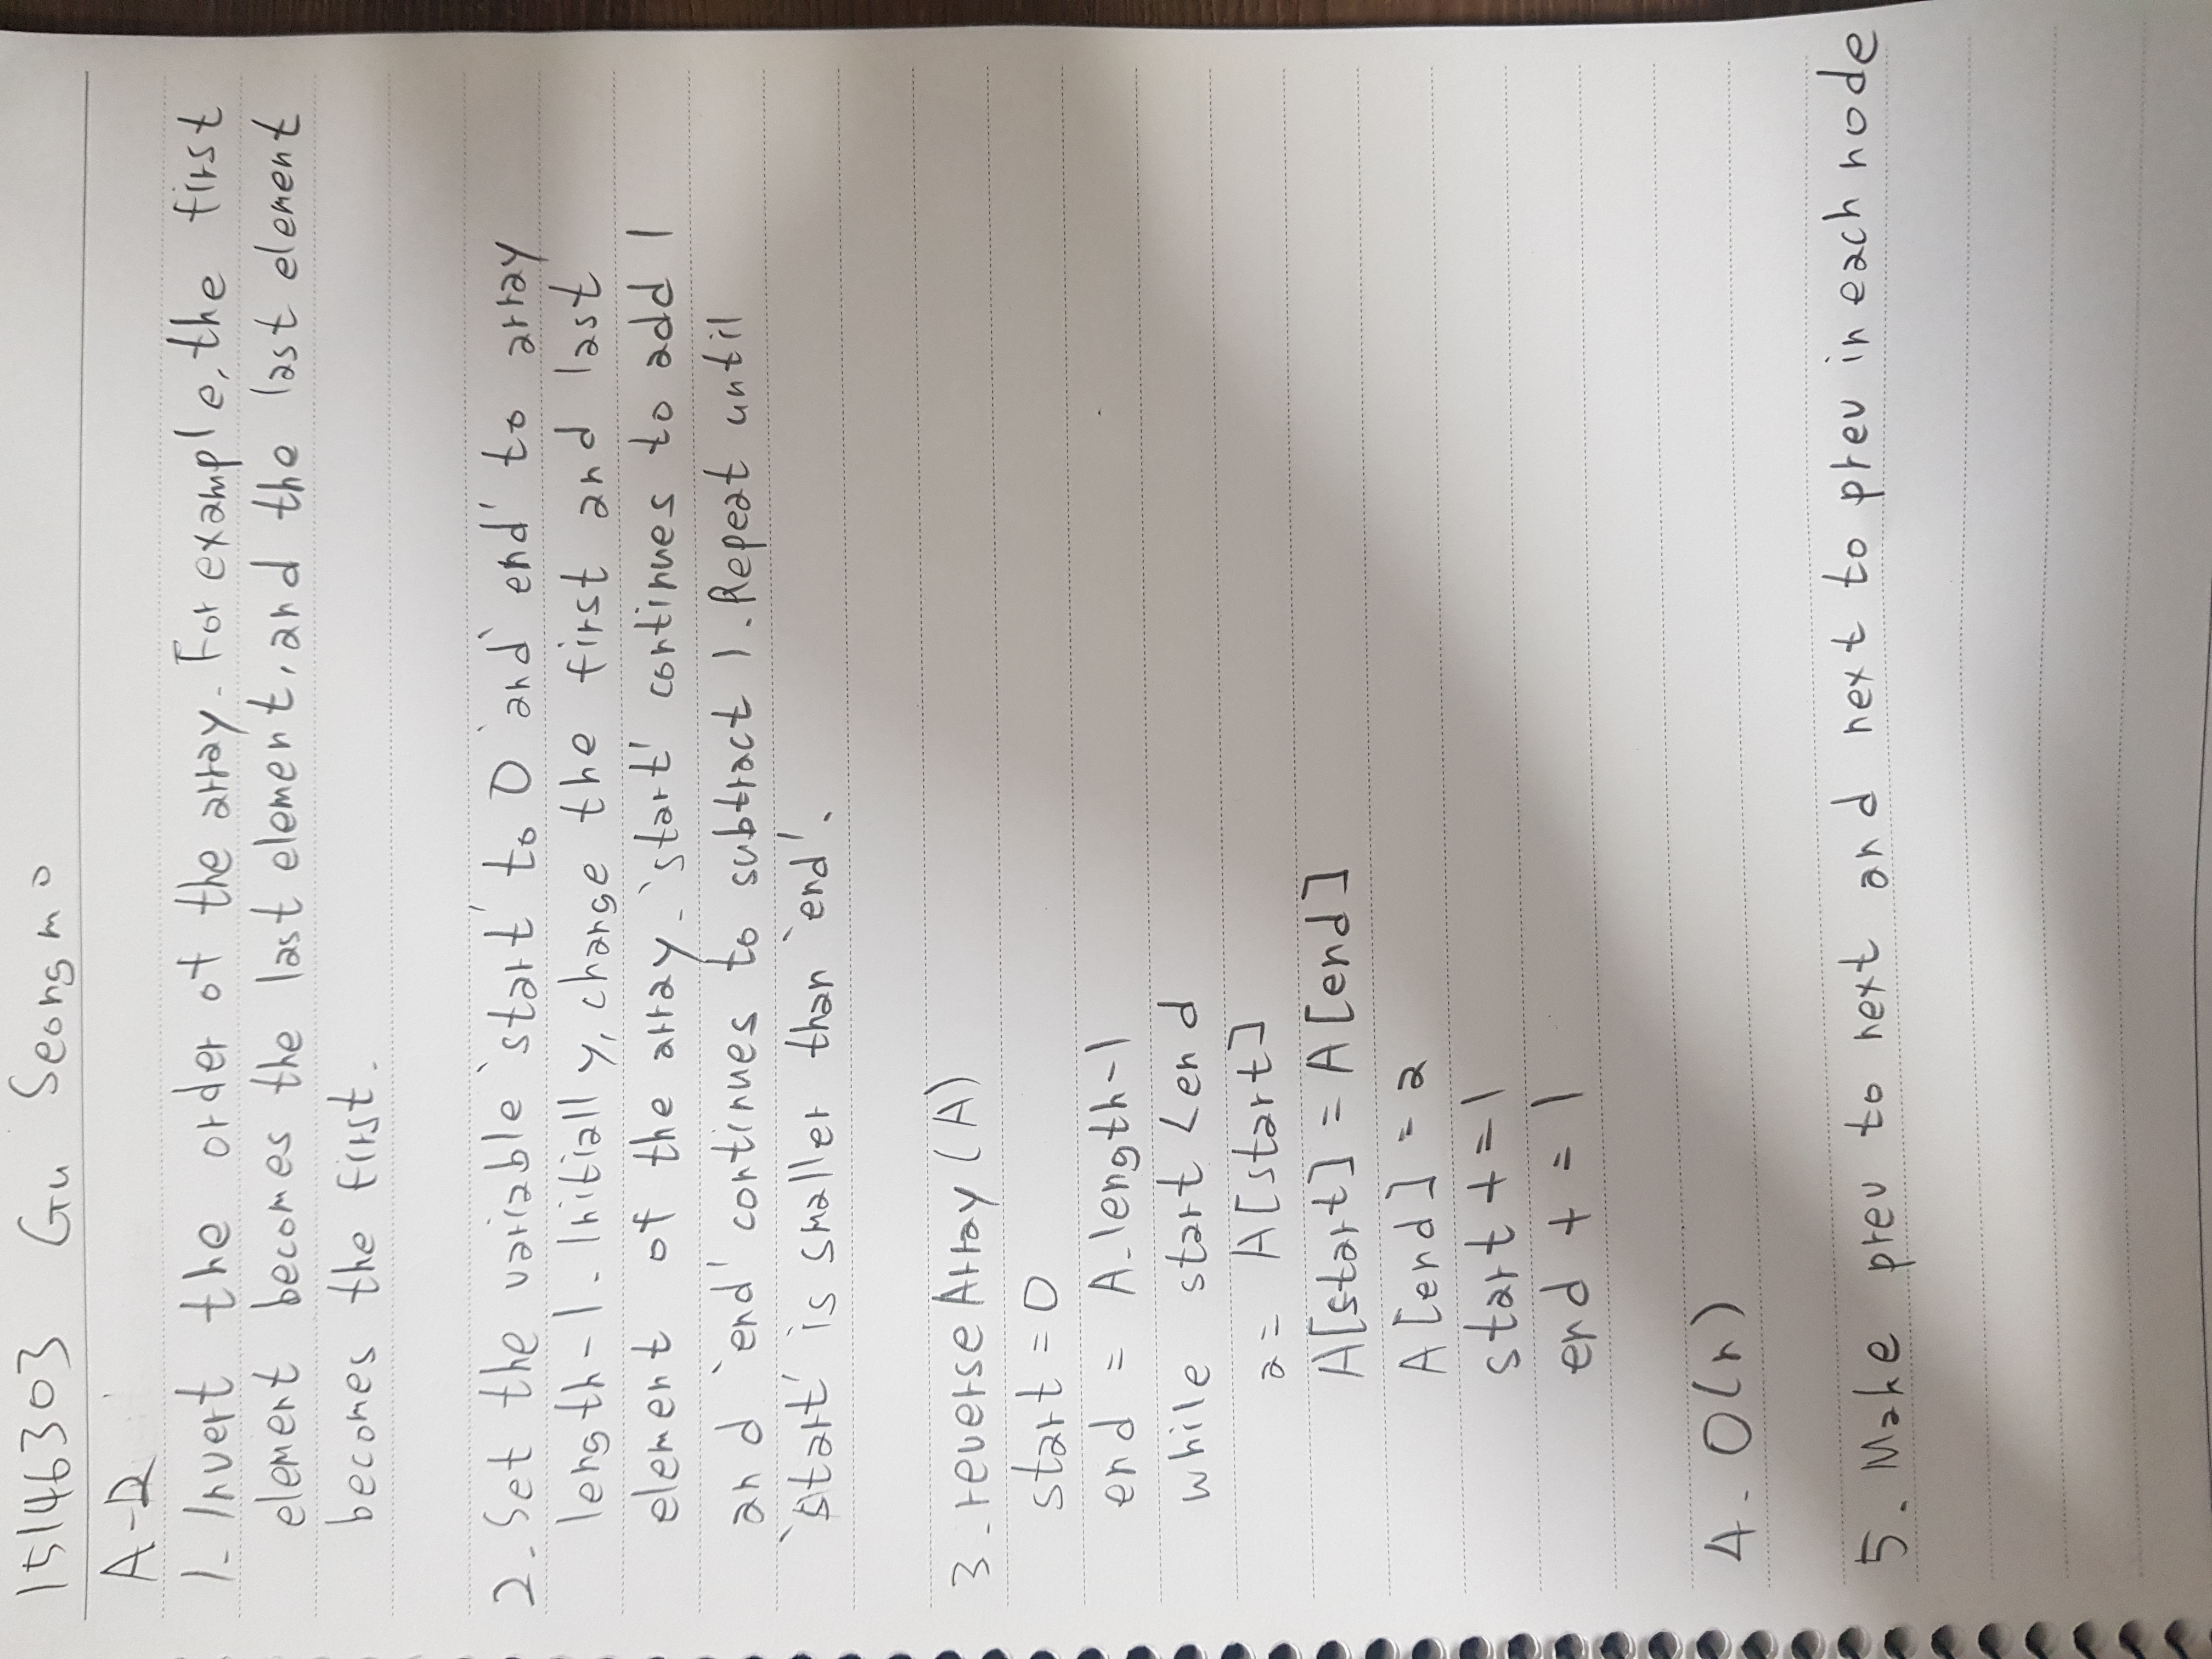 15146303 Gu Seongmo
A-D
1. Invert the order of the array. For example, the first
element becomes the last element, and the last element
becomes the first.
2. Set the variable 'start' to 0 and 'end' to array
length-1. Initially, change the first and last
element of the array. 'start' continues to add 1
and 'end' continues to subtract 1. Repeat until
'start' is smaller than 'end'.
3. reverseArray(A)
start = 0
end = A.length-1
while start < end
a = A[start]
A[start] = A[end]
A[end] = a
start += 1
end += 1
4. O(n)
5. Make prev to next and next to prev in each node